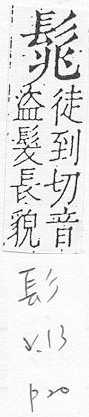 徒到切音
盜髮長貌
髟
V.13
p20